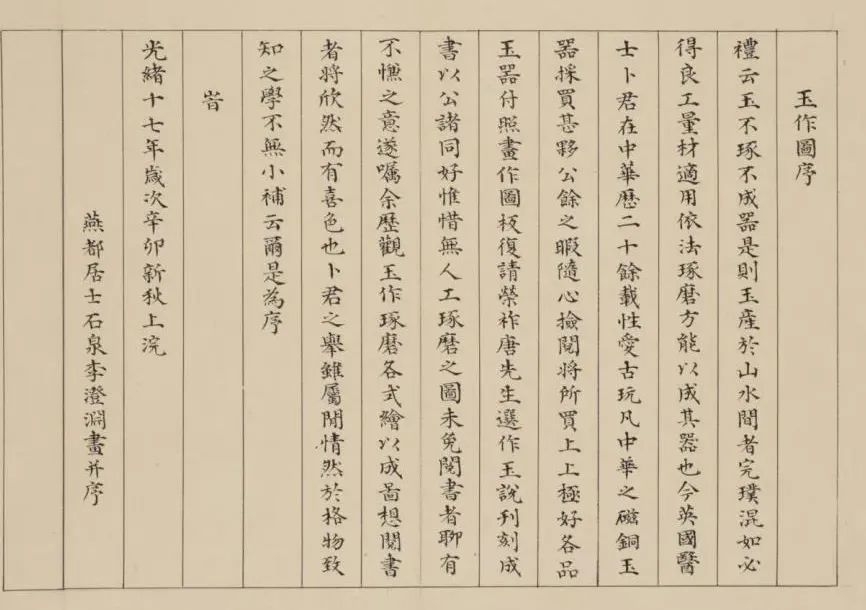 玉作圖序
禮云玉不琢不成器是則玉產於山水間者完璞混如必
得良工量材適用依法琢磨方能以成其器也今英國醫
士卜君在中華歷二十餘載性愛古玩凡中華之磁銅玉
器採買甚夥公餘之暇隨心撿閱將所買上上極好各品
玉器付照畫作圖板復請榮祚唐先生選作玉說刊刻成
書以公諸同好惟惜無人工琢磨之圖未免閱書者聊有
不慊之意遂囑余歷觀玉作琢磨各式繪以成啚想閱書
者將欣然而有喜色也卜君之舉雖屬閒情然於格物致
知之學不無小補云爾是為序
旹
光緒十七年歲次辛卯新秋上浣
燕都居士石泉李澄淵畫并序